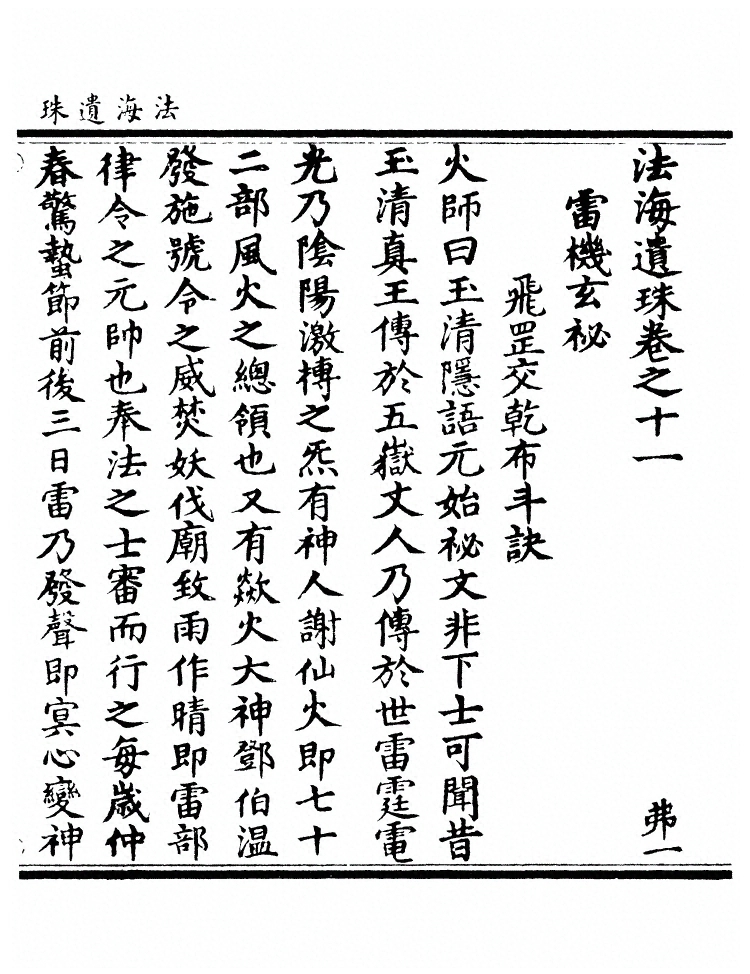 法海遺珠
法海遺珠卷之十一 弗一
雷機玄祕
飛罡交乾布斗訣
火師曰玉清隱語元始祕文非下士可聞昔
玉清真王傳於五嶽丈人乃傳於世雷霆電
光乃陰陽激摶之炁有神人謝仙火即七十
二部風火之總領也又有歘火大神鄧伯溫
發施號令之威焚妖伐廟致雨作晴即雷部
律令之元帥也奉法之士審而行之每歲仲
春驚蟄節前後三日雷乃發聲即冥心變神